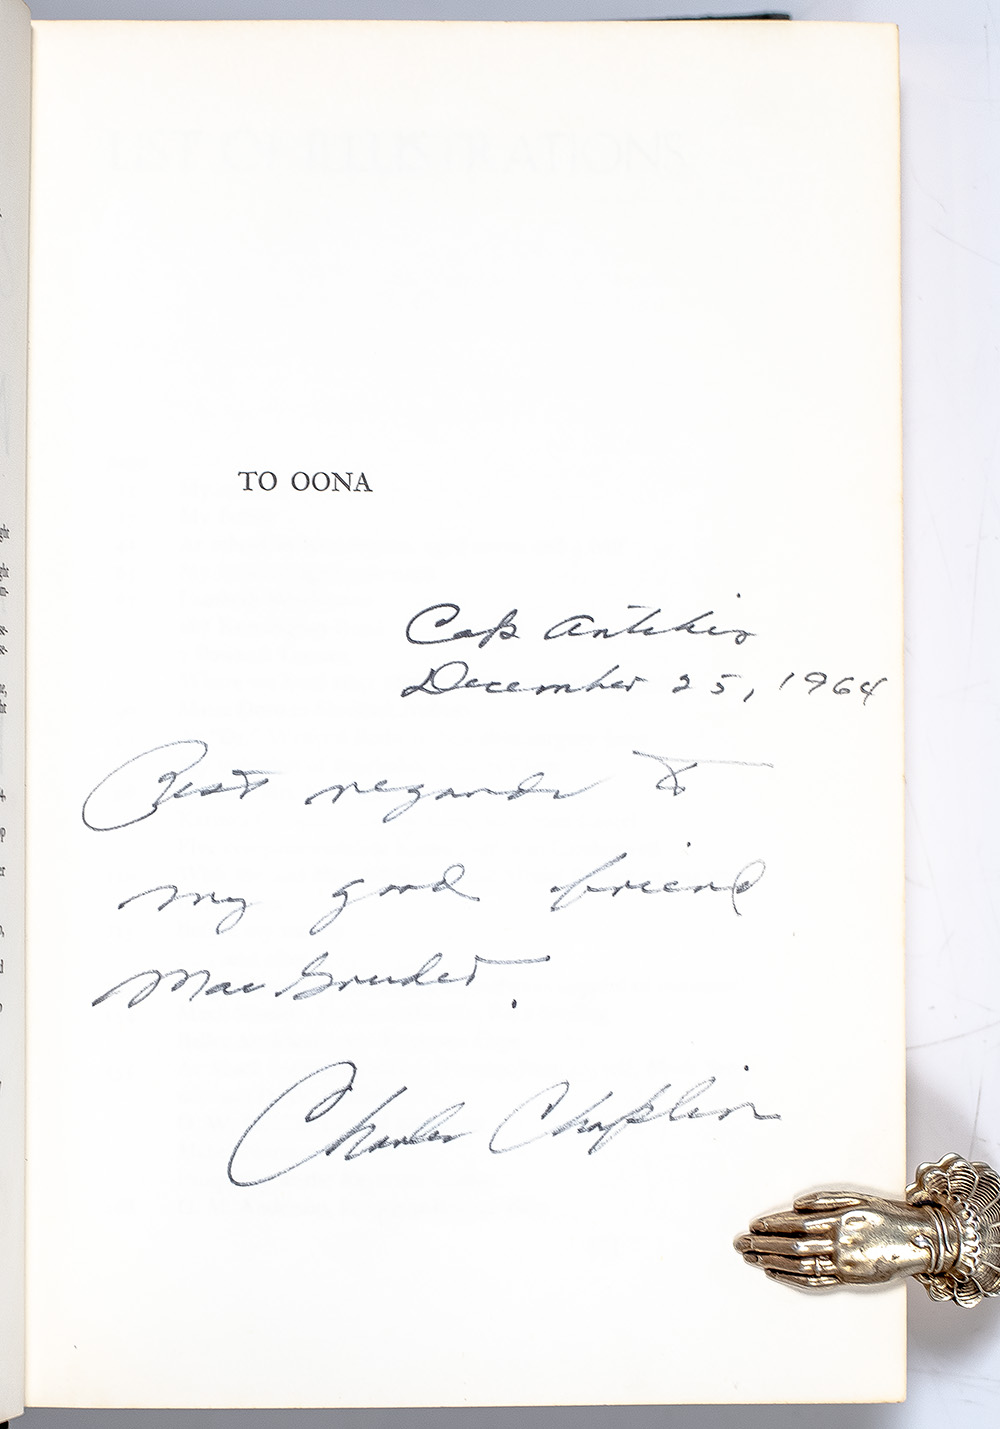 TO OONA
Cap Antibis
December 25, 1964
Best regards to
my good friend
MacGruder.
Charles Chaplin